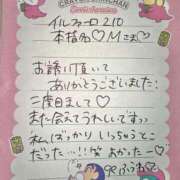 CRAYON SHINCHAN
イルフォーロ210
本指名♡Mさま♡
お誘い頂いて
ありがとうございました!
二度目まして♡
また会えてうれしいです♡
私ばっかりいっちゃうこと
だった…!! 笑 よかったー♡